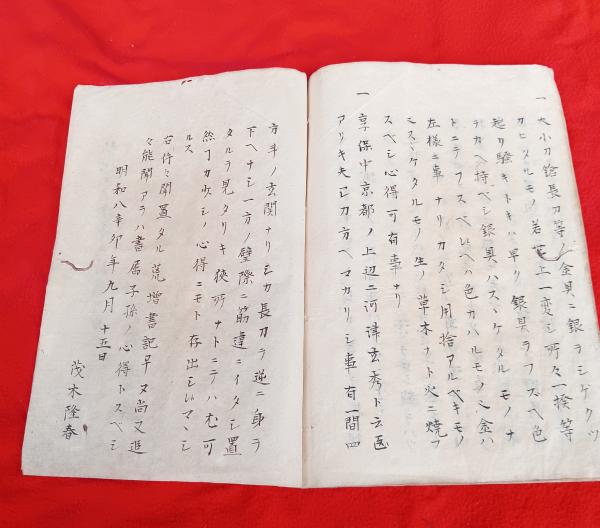 一 大小刀鎗長刀等ノ金具ニ銀ヲシケクツ
カヒタルモノ若世上一変シ所々一揆等
起リ騒キトキハ早ク銀具ヲフスヘ色
チカヘ持ベシ銀具ハスヽケタルモノナ
トニテフスベレハ色カハルモノシ金ハ
左様ニ事ナリカタシ用捨アルベキモノ
ミスヽケタルモノ生ノ草木ナト火ニ焼フ
スベシ心得可有事ナリ
一 享保中京都ノ上辺ニ河津玄秀ト云医
アリキ夫已刀方ヘマカリシ事有一間四
方斗ノ玄関ナリシカ長刀ヲ逆ニ身ヲ
下ヘナシ一方ノ壁際ニ筋違ニイタシ置
タルヲ見タリキ狭所ナトニテハ尤可
然丁カ吹シノ心得ニモト存出シレマヽシ
ルス
右件々聞置タル荒増書記早ヌ尚又追
々能聞アラハ書属子孫ノ心得トスベシ
明和八辛卯年九月十五日
茂木隆春